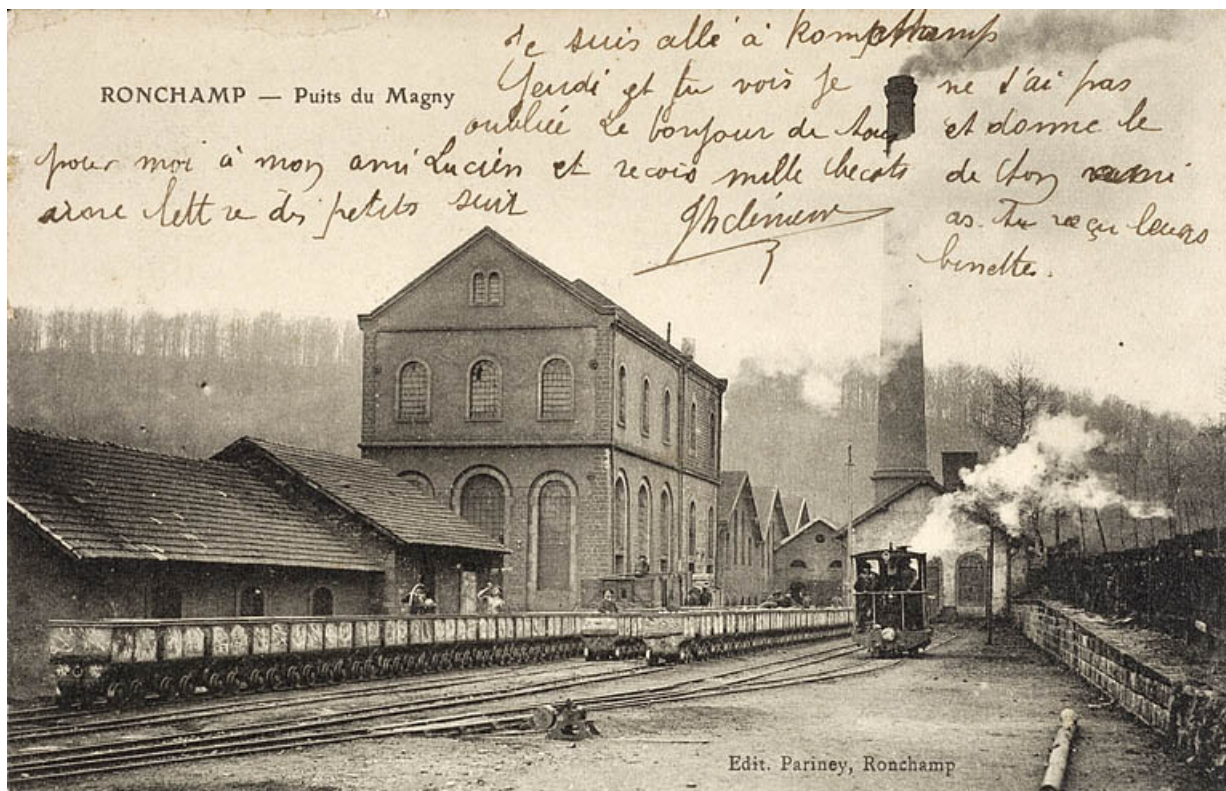 RONCHAMP — Puits du Magny
Je suis allé à
Jeudi et tu vois je ne t'ai pas
oubliée Le bonjour de tous et donne le
pour moi à mon ami Lucien et reçois mille de ton ami
lettre des petits suit as-tu reçu leurs
binettes.
Edit. Pariney, Ronchamp